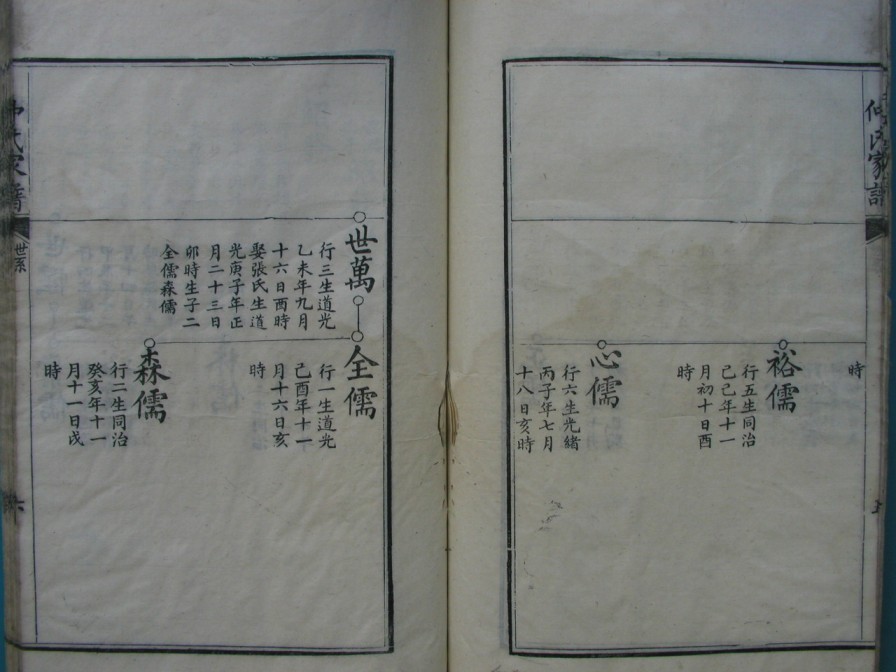 氏家譜
時
裕儒
行五生同治
己巳年十一
月初十日酉
時
心儒
行六生光緒
丙子年七月
十八日亥時
世萬
行三生道光
乙未年九月
十六日酉時
娶張氏生道
光庚子年正
月二十三日
卯時生子二
全儒森儒
全儒
行一生道光
己酉年十一
月十六日亥
時
森儒
行二生同治
癸亥年十一
月十一日戌
時
氏家譜
世系
六